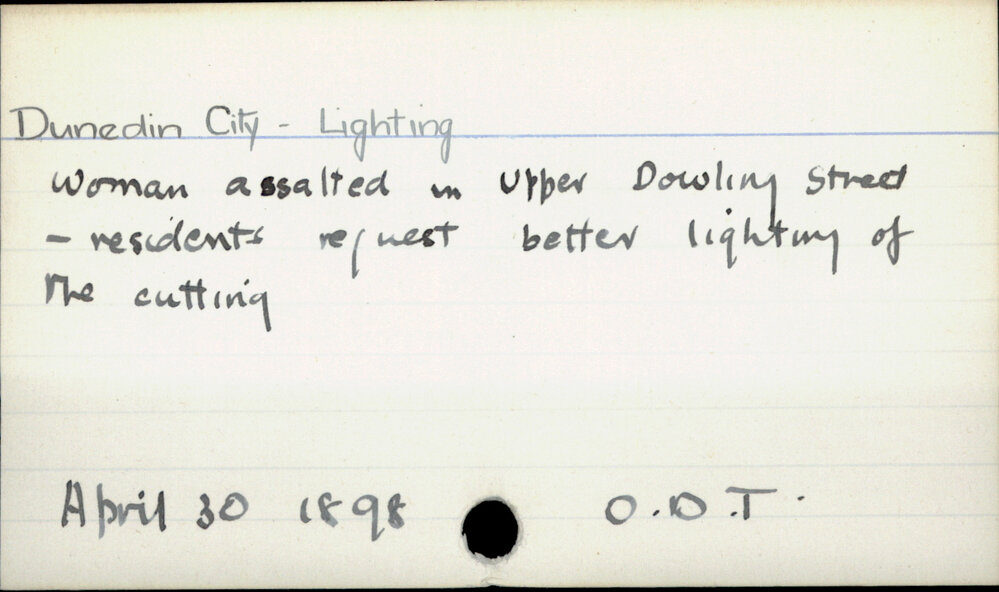 Dunedin City - Lighting
Woman assalted in Upper Dowling Street
- residents request better lighting of
the cutting
April 30 1898 O.D.T.